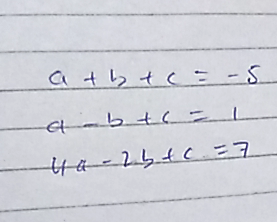 a + b + c = -5
a - b + c = 1
4a - 2b + c = 7